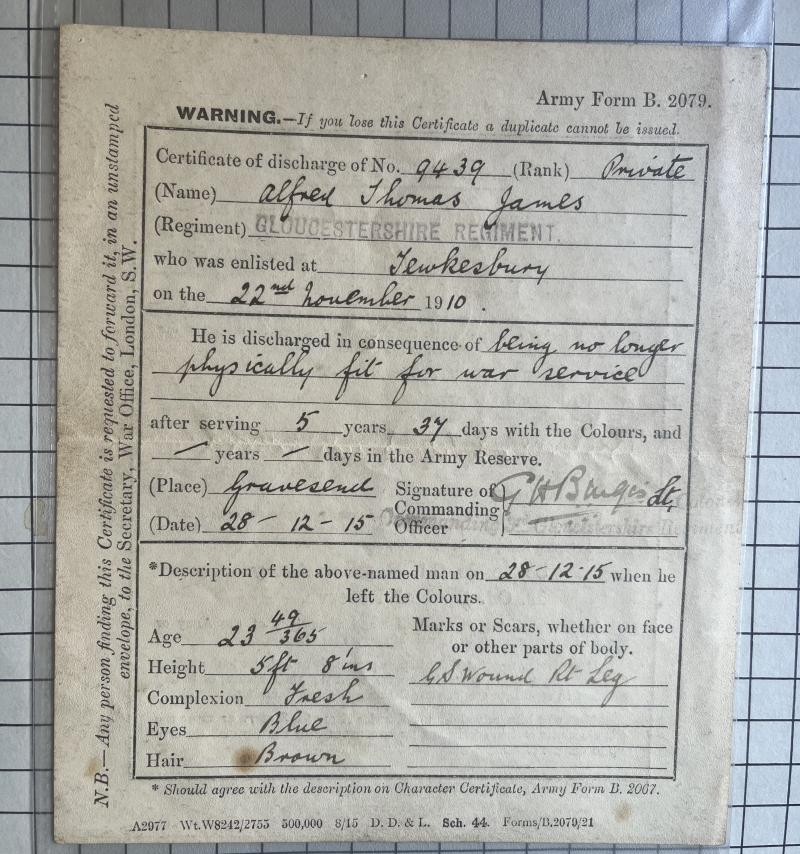 Army Form B. 2079.
WARNING.—If you lose this Certificate a duplicate cannot be issued.
Certificate of discharge of No. 9439 (Rank) Private
(Name) Alfred Thomas James
(Regiment) GLOUCESTERSHIRE REGIMENT.
who was enlisted at Tewkesbury
on the 22nd November 1910.
He is discharged in consequence of being no longer
physically fit for war service
after serving 5 years 37 days with the Colours, and
— years — days in the Army Reserve.
(Place) Gravesend Signature of G H Burgis Lt,
Commanding
(Date) 28 - 12 - 15 Officer
*Description of the above-named man on 28-12-15 when he
left the Colours.
Age 23 49/365
Height 5ft 8 ins
Complexion Fresh
Eyes Blue
Hair Brown
Marks or Scars, whether on face
or other parts of body.
G S Wound Rt Leg
* Should agree with the description on Character Certificate, Army Form B. 2067.
A2977 Wt.W8242/2755 500,000 8/15 D. D. & L. Sch. 44. Forms/B.2079/21
N.B.—Any person finding this Certificate is requested to forward it, in an unstamped
envelope, to the Secretary, War Office, London, S.W.